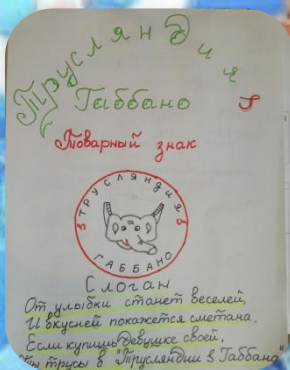 ТруслянДия
Габбано
Товарный знак
ТРУСЛЯНДИЯ
ГАББАНО
Слоган
От улыбки станет веселей,
И вкусней покажется сметана.
Если купишь девушке своей,
трусы в "ТруслянДии & Габбана"